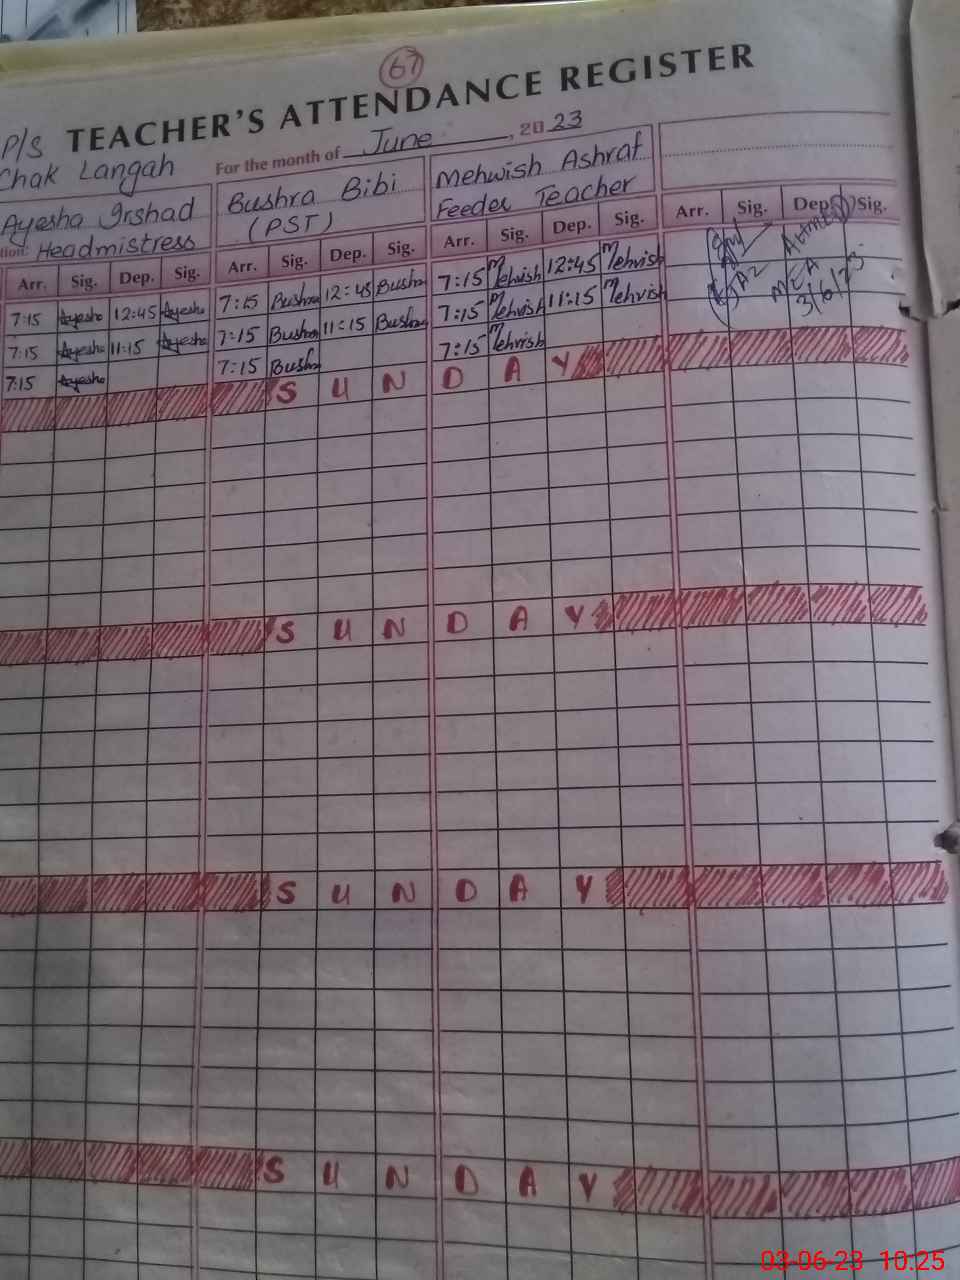 67
TEACHER'S ATTENDANCE REGISTER
P/S
Chak Langah
For the month of June, 2023
Ayesha Irshad
Headmistress
Bushra Bibi
(PST)
Mehwish Ashraf
Feeder Teacher
Arr. Sig. Dep. Sig. Arr. Sig. Dep. Sig. Arr. Sig. Dep. Sig. Arr. Sig. Dep. Sig.
7:15 Ayesha 12:45 Ayesha 7:15 Bushra 12:45 Bushra 7:15 Mehvish 12:45 Mehvish
7:15 Ayesha 11:15 Ayesha 7:15 Bushra 11:15 Bushra 7:15 Mehvish 11:15 Mehvish
7:15 Ayesha 7:15 Bushra 7:15 Mehvish
MEA
3/6/23
SUNDAY
SUNDAY
SUNDAY
SUNDAY
03-06-23 10:25